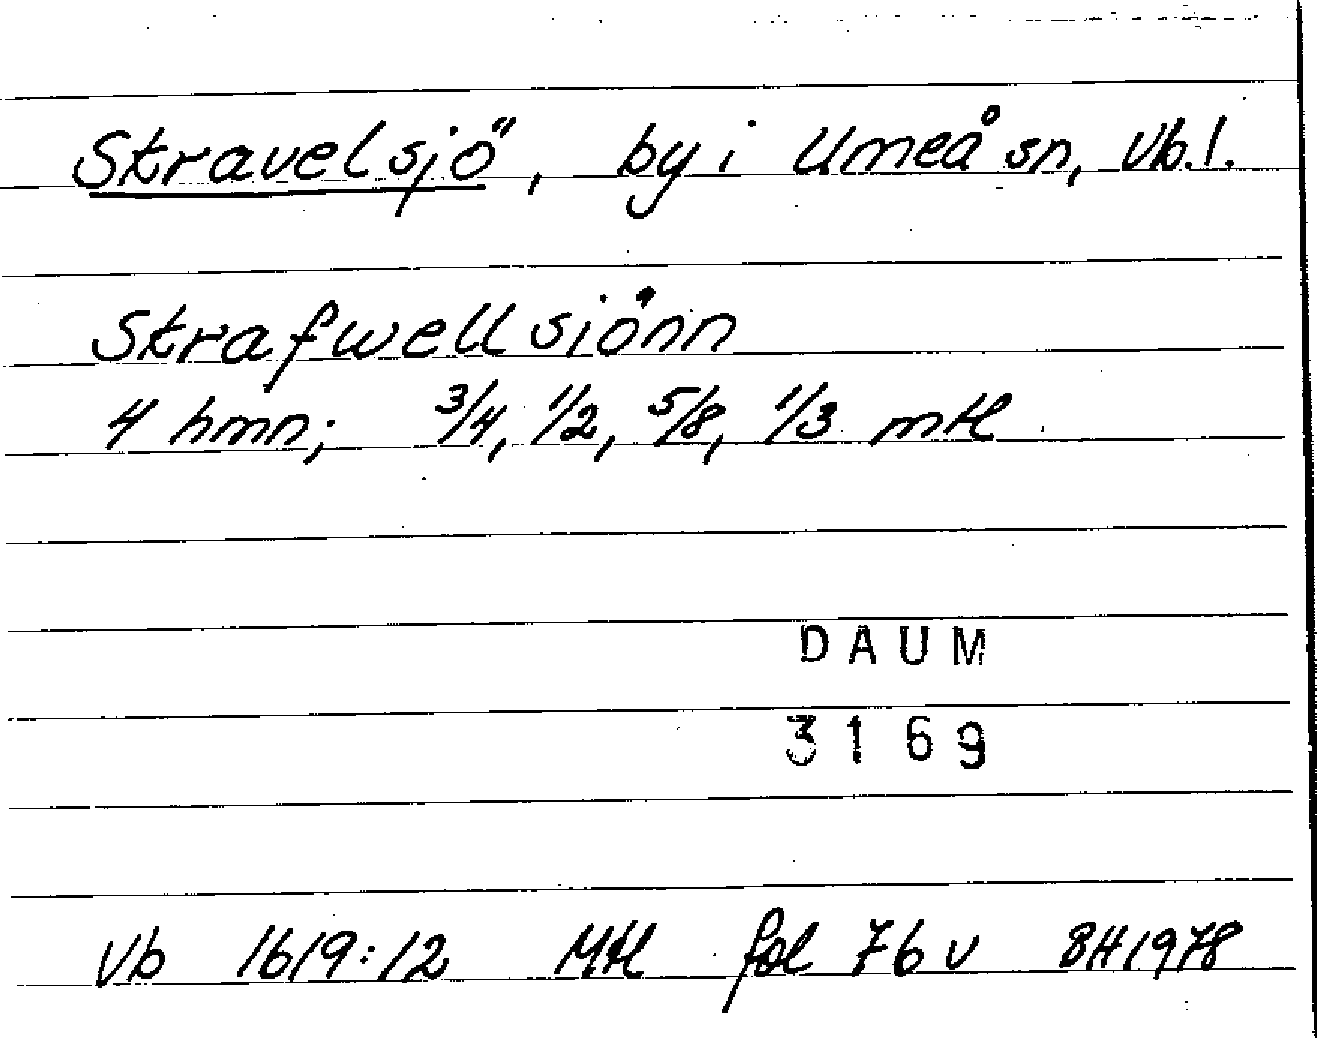 Stravelsjö, by i Umeå sn, Vb. l.
Strafwellsiönn
4 hmn; 3/4, 1/2, 5/8, 1/3 mtl
DAUM
3169
Vb 1619:12 Mtl fol 76 v BH 1978